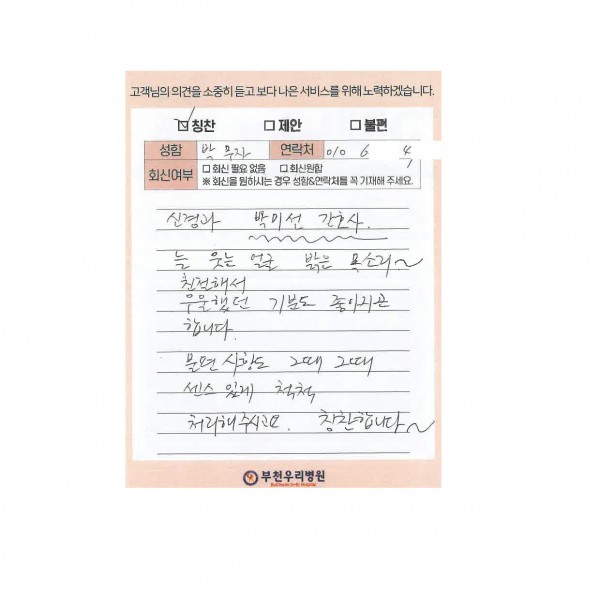 고객님의 의견을 소중히 듣고 보다 나은 서비스를 위해 노력하겠습니다.
☑ 칭찬 ☐ 제안 ☐ 불편
성함 박 연락처 010 6 4
회신여부 ☐ 회신 필요 없음 ☐ 회신원함
※ 회신을 원하시는 경우 성함&연락처를 꼭 기재해 주세요.
신경과 박미선 간호사.
늘 웃는 얼굴 밝은 목소리~
친절해서
우울했던 기분도 좋아지곤
합니다.
불편 사항도 그때 그때
센스 있게 척척
처리해주시고요. 칭찬합니다~
부천우리병원